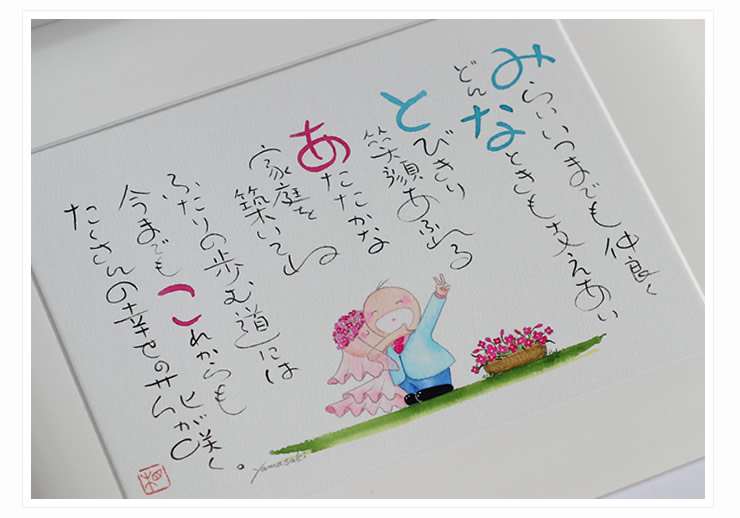 みらいいつまでも仲良く
どんなときも支えあい
とびきり
笑顔あふれる
あたたかな
家庭を築いてね
ふたりの歩む道には
今までもこれからも
たくさんの幸せの花が咲く。
yamasaki